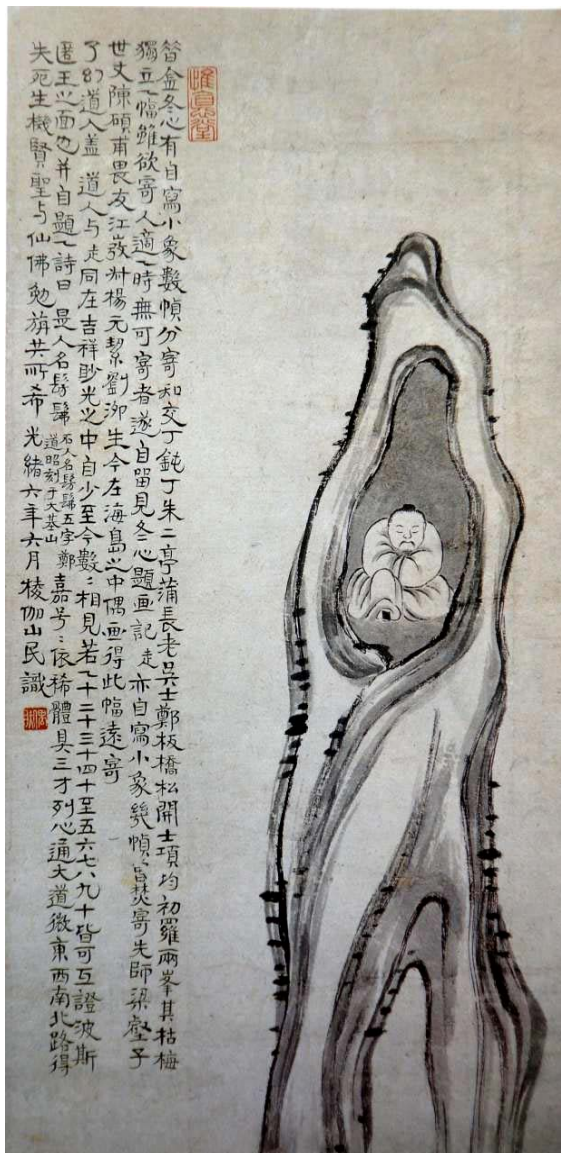 昔金冬心有自寫小象數幀分寄知交丁鈍丁朱二亭蒲長老吳士鄭板橋松開士項均初羅兩峯其枯梅
獨立一幅雖欲寄人適一時無可寄者遂自留見冬心題画記走亦自寫小象幾幀皆焚寄先師梁壑子
世丈陳碩甫畏友江弢叔楊元絜劉泖生今在海島之中偶画得此幅遠寄
了幻道人蓋道人与走同在吉祥眇光之中自少至今數〻相見若一十二十三十四十至五六七八九十皆可互證波斯
匿王之面也并自題一詩曰 是人名髣髴
石人名髣髴五字鄭
道昭刻于大基山
嘉号〻依稀體具三才列心通大道微東西南北路得
失死生機賢聖与仙佛勉旃共所希 光緒六年六月 棱伽山民識